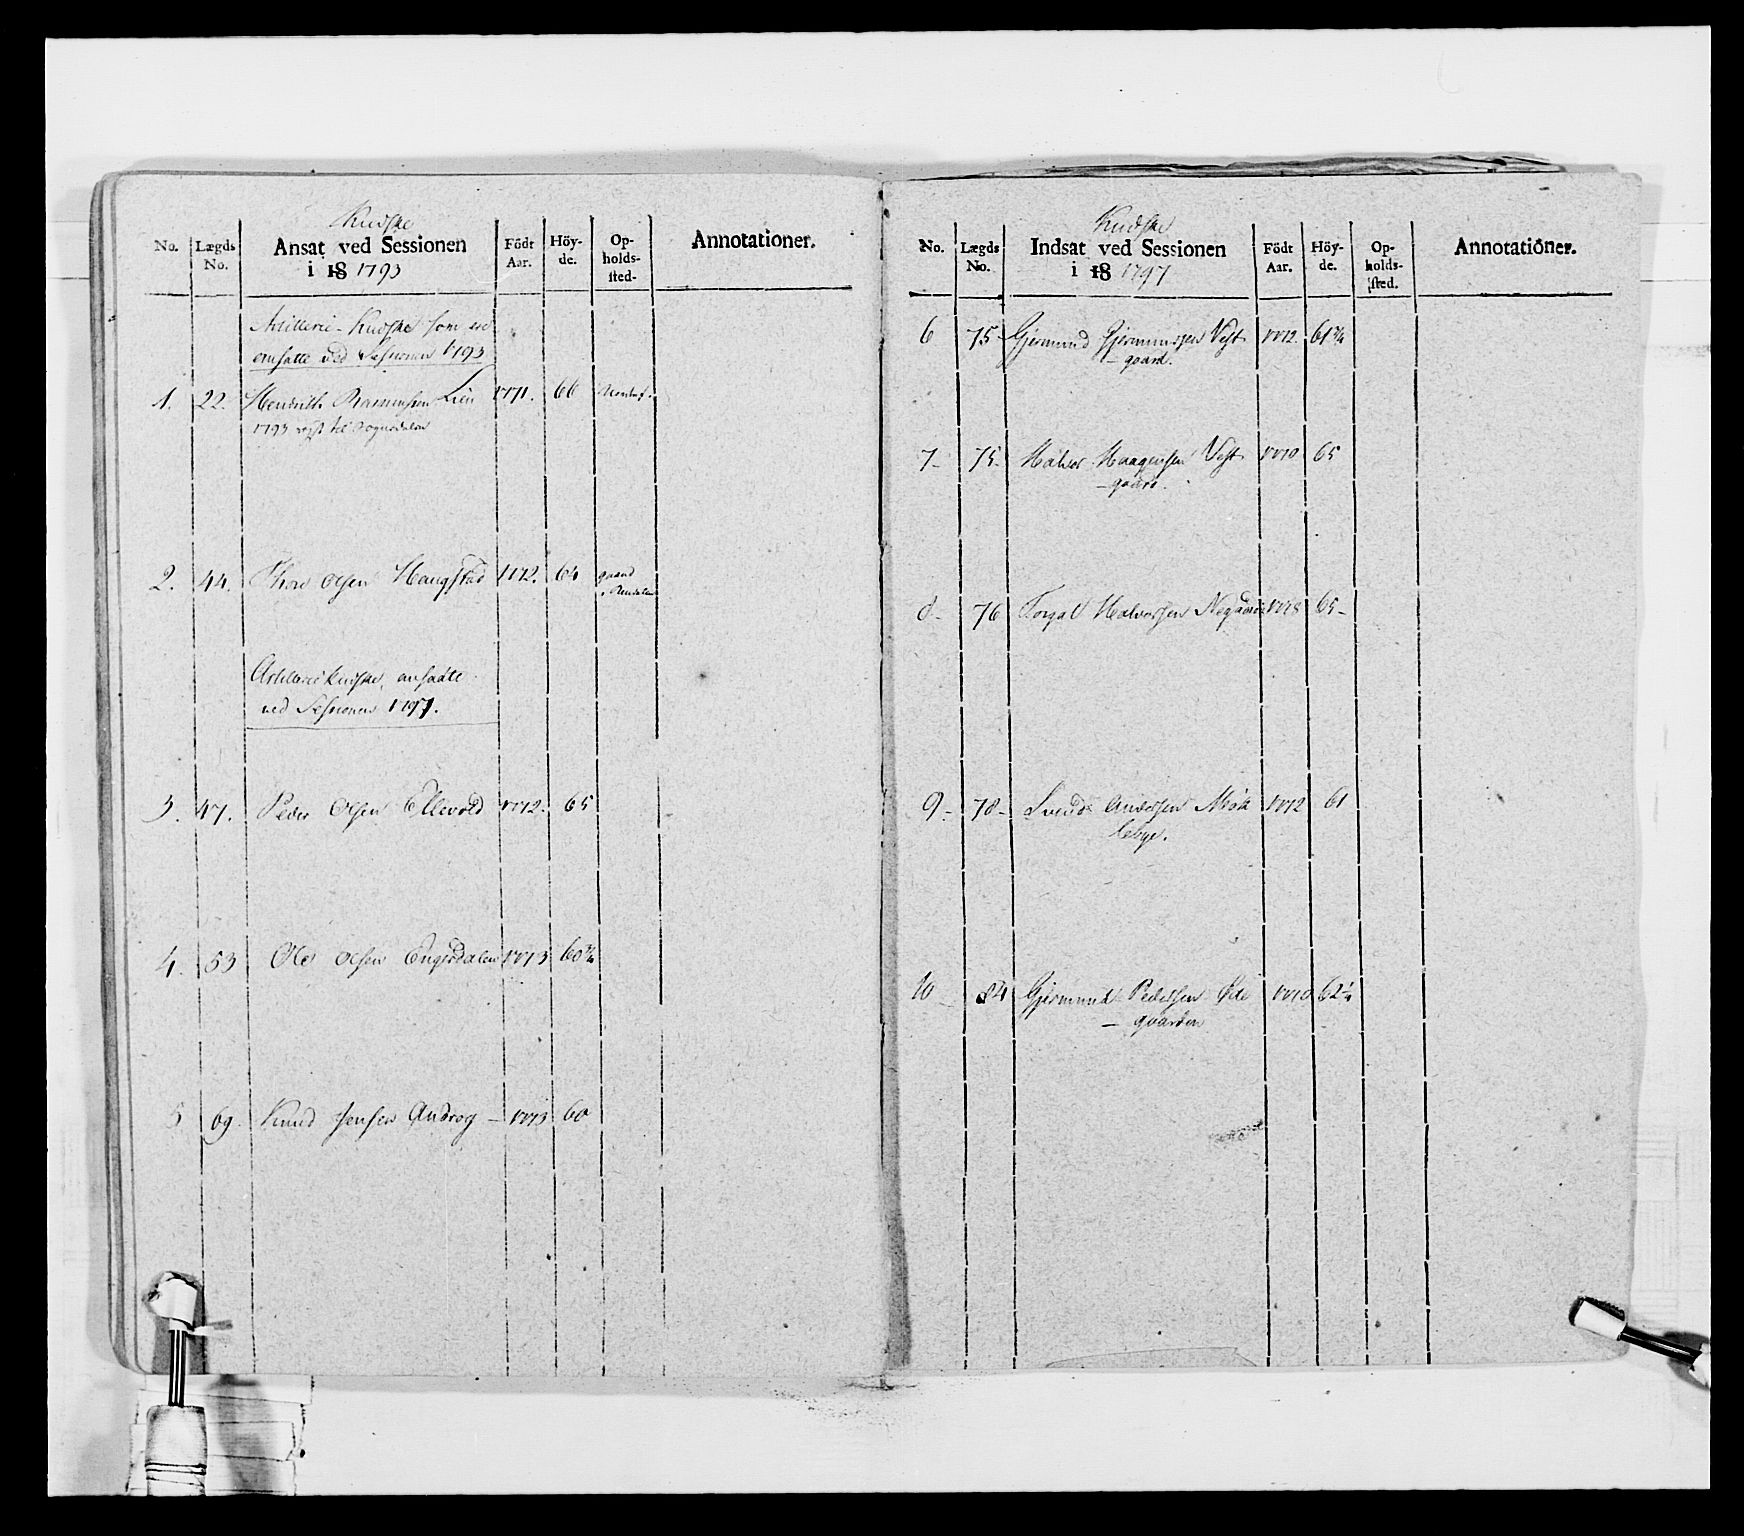 Kudske
No. Lægds No. Ansat ved Sessionen i 18 1793 Födt Aar. Höy-de. Op-holds-sted. Annotationer.
Artillerie-Kudske som ere
ansatte ved Sessionen 1793
1. 22. Hendrich Rasmussen Lien 1771. 66
1793 rejst til Sognedalen
2. 44. Thore Olsen Haugstad 1772. 64 gaard
Artilleriekudske, ansadte
ved Sessionen 1797.
3. 47. Peder Olsen Ellevold 1772. 65
4. 53 Ole Olsen Engerdalen 1773 60 3/4
5 69. Knud Jensen Androg – 1773 60
Kudske
No. Lægds No. Indsat ved Sessionen i 18 1797 Födt Aar. Höy-de. Op-holds-sted. Annotationer.
6 75 Gjermund Gjermundsen Vest 1772. 61 3/4
– gaard.
7- 75- Halvor Haagensen Vest 1770 65
– gaard.
8- 76 Torgal Halvorsen Negaard 1778 65-
9- 78- Svend Andersen Mök 1772 61
lebye.
10 84 Gjermund Pedersen Öde 1770 62 1/4
– gaarden